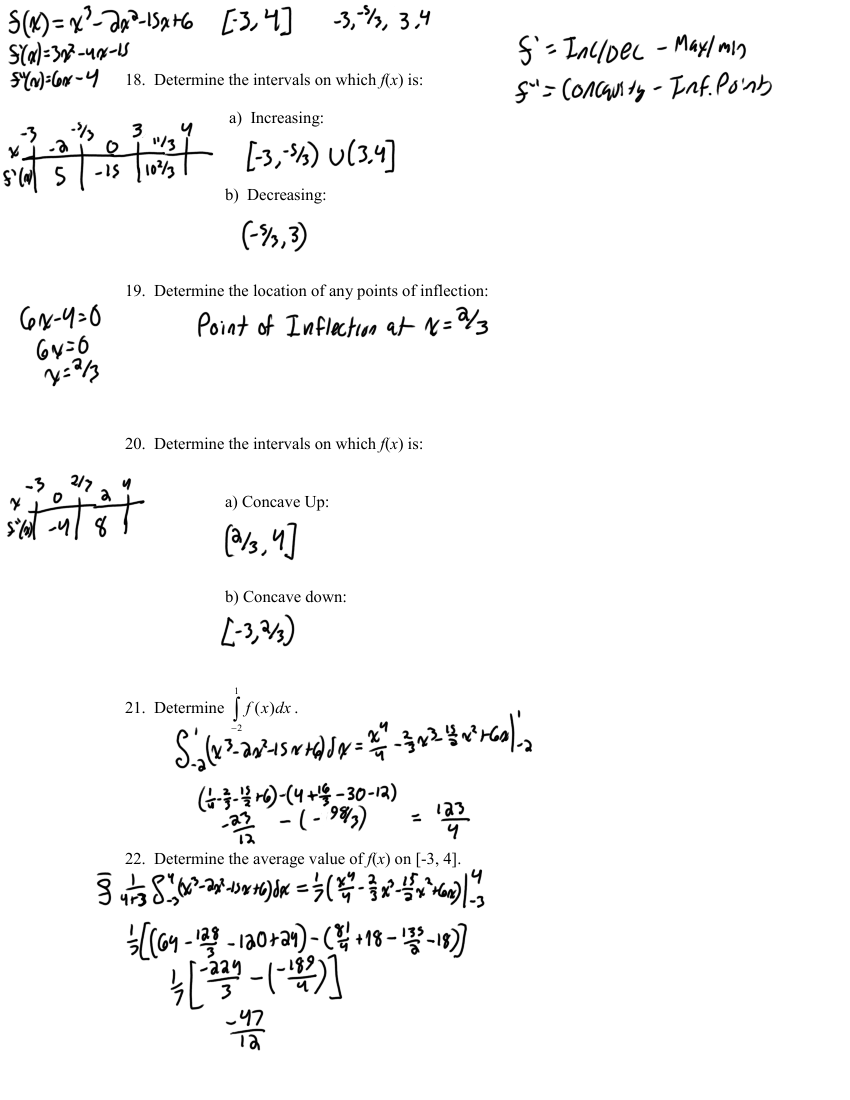 f(x) = x³ - 2x² - 15x + 6 [-3, 4] -3, -5/3, 3, 4
f'(x) = 3x² - 4x - 15
f''(x) = 6x - 4
f' = Inc/Dec - Max/min
f'' = Concavity - Inf. Points
18. Determine the intervals on which f(x) is:
a) Increasing:
-3 -5/3 3 4
x -2 0 11/3
f'(x) 5 -15 10 2/3
[-3, -5/3) ∪ (3, 4]
b) Decreasing:
(-5/3, 3)
19. Determine the location of any points of inflection:
6x-4=0
6x=0
x=2/3
Point of Inflection at x = 2/3
20. Determine the intervals on which f(x) is:
-3 2/7 4
x 0 2
f''(x) -4 8
a) Concave Up:
(2/3, 4]
b) Concave down:
[-3, 2/3)
21. Determine ∫₋₂¹ f(x)dx.
∫₋₂¹ (x³-2x²-15x+6)dx = x⁴/4 - 2/3 x³ - 15/2 x² + 6x |₋₂¹
(1/4 - 2/3 - 15/2 + 6) - (4 + 16/3 - 30 - 12)
-23/12 - (-98/3) = 123/4
22. Determine the average value of f(x) on [-3, 4].
1/4+3 ∫₋₃⁴ (x³-2x²-15x+6)dx = 1/7 (x⁴/4 - 2/3 x³ - 15/2 x² + 6x) |₋₃⁴
1/7 [(64 - 128/3 - 120 + 24) - (81/4 + 18 - 135/2 - 18)]
1/7 [-224/3 - (-189/4)]
-47/12